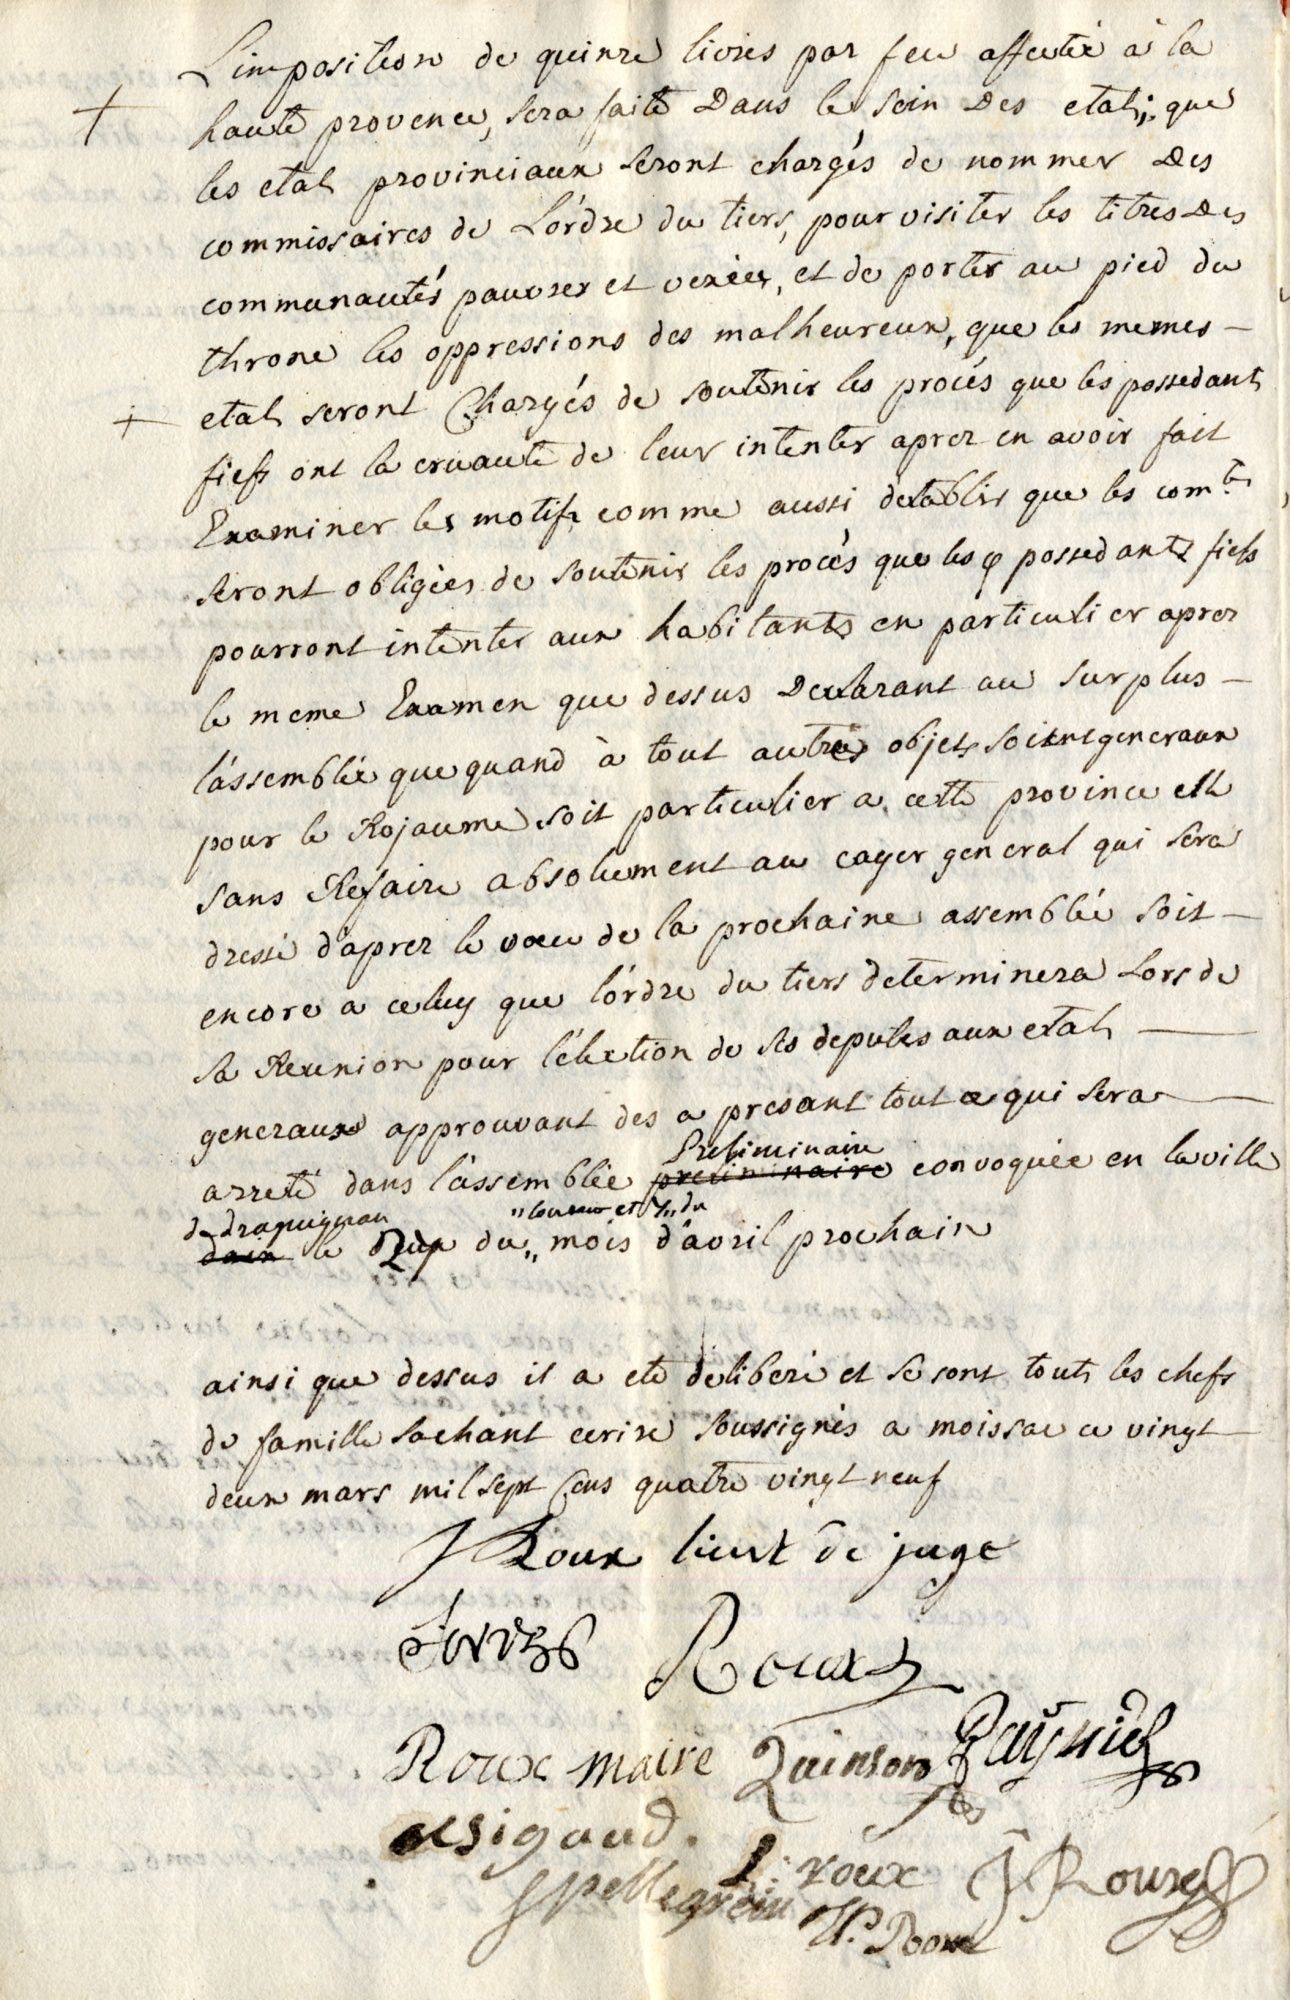 L'imposition de quinze livres par feu affectée à la
haute provence, sera faite Dans le sein Des etats; que
les etats provinciaux seront chargés de nommer Des
commissaires de L'ordre du tiers, pour visiter les titres Des
communautés pauvres et vexées, et de porter au pied du
throne les oppressions des malheureux, que les memes
etats seront Chargés de soutenir les procés que les possedant
fiefs ont la cruauté de leur intenter aprez en avoir fait
Examiner les motifs comme aussi detablir que les com.tés
seront obligées de soutenir les procés que les possedants fiefs
pourront intenter aux habitants en particulier aprez
le meme Examen que dessus Declarant au surplus
l'assemblée que quand à tout autres objets soit generaux
pour le Rojaume soit particulier a cette province elle
sans Refaire absolument au cayer general qui sera
dressé d'aprez le voeu de la prochaine assemblée soit
encore a celuy que l'ordre du tiers determinera Lors de
sa Reunion pour l'election de ses deputés aux etats
generaux approuvant des a presant tout ce qui sera
arreté dans l'assemblée preliminaire Preliminaire convoquée en la ville
d'aix de draguignan le du mois d'avril prochain
ainsi que dessus il a eté deliberé et se sont touts les chefs
de famille sachant ecrire soussignés a moissac ce vingt
deux mars mil sept Cens quatre vingt neuf
Roux lieut de juge
Roux
Roux maire Quinson Raynier
Sigaud.
Roux J Roux
Pellegrin
Roux